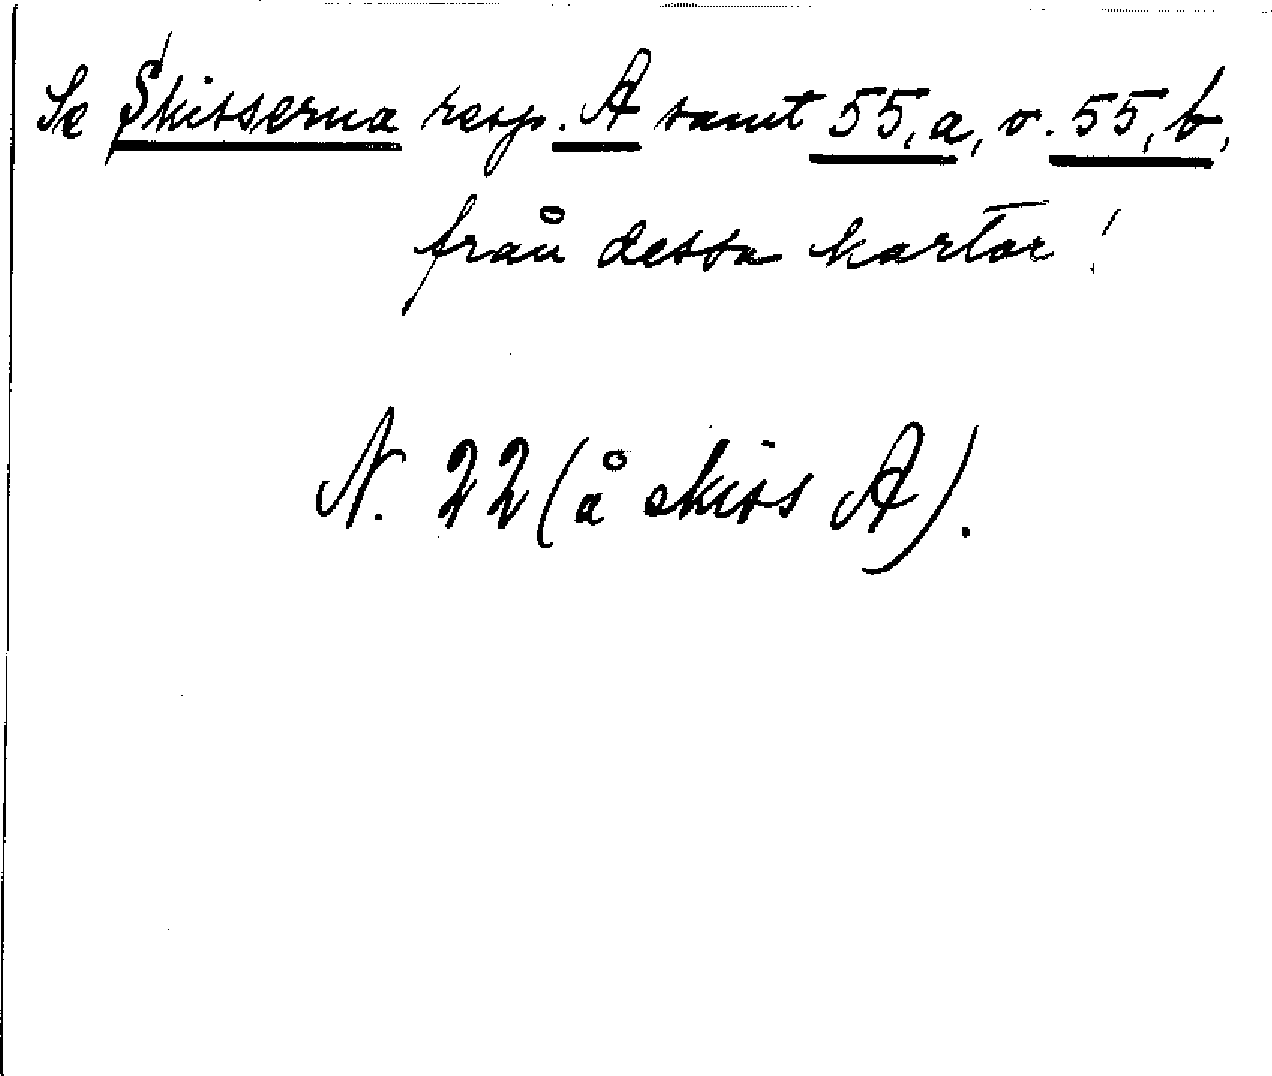 Se Skisserna resp. A samt 55,a, o. 55,b,
från dessa kartor!
N. 22 (å skiss A).